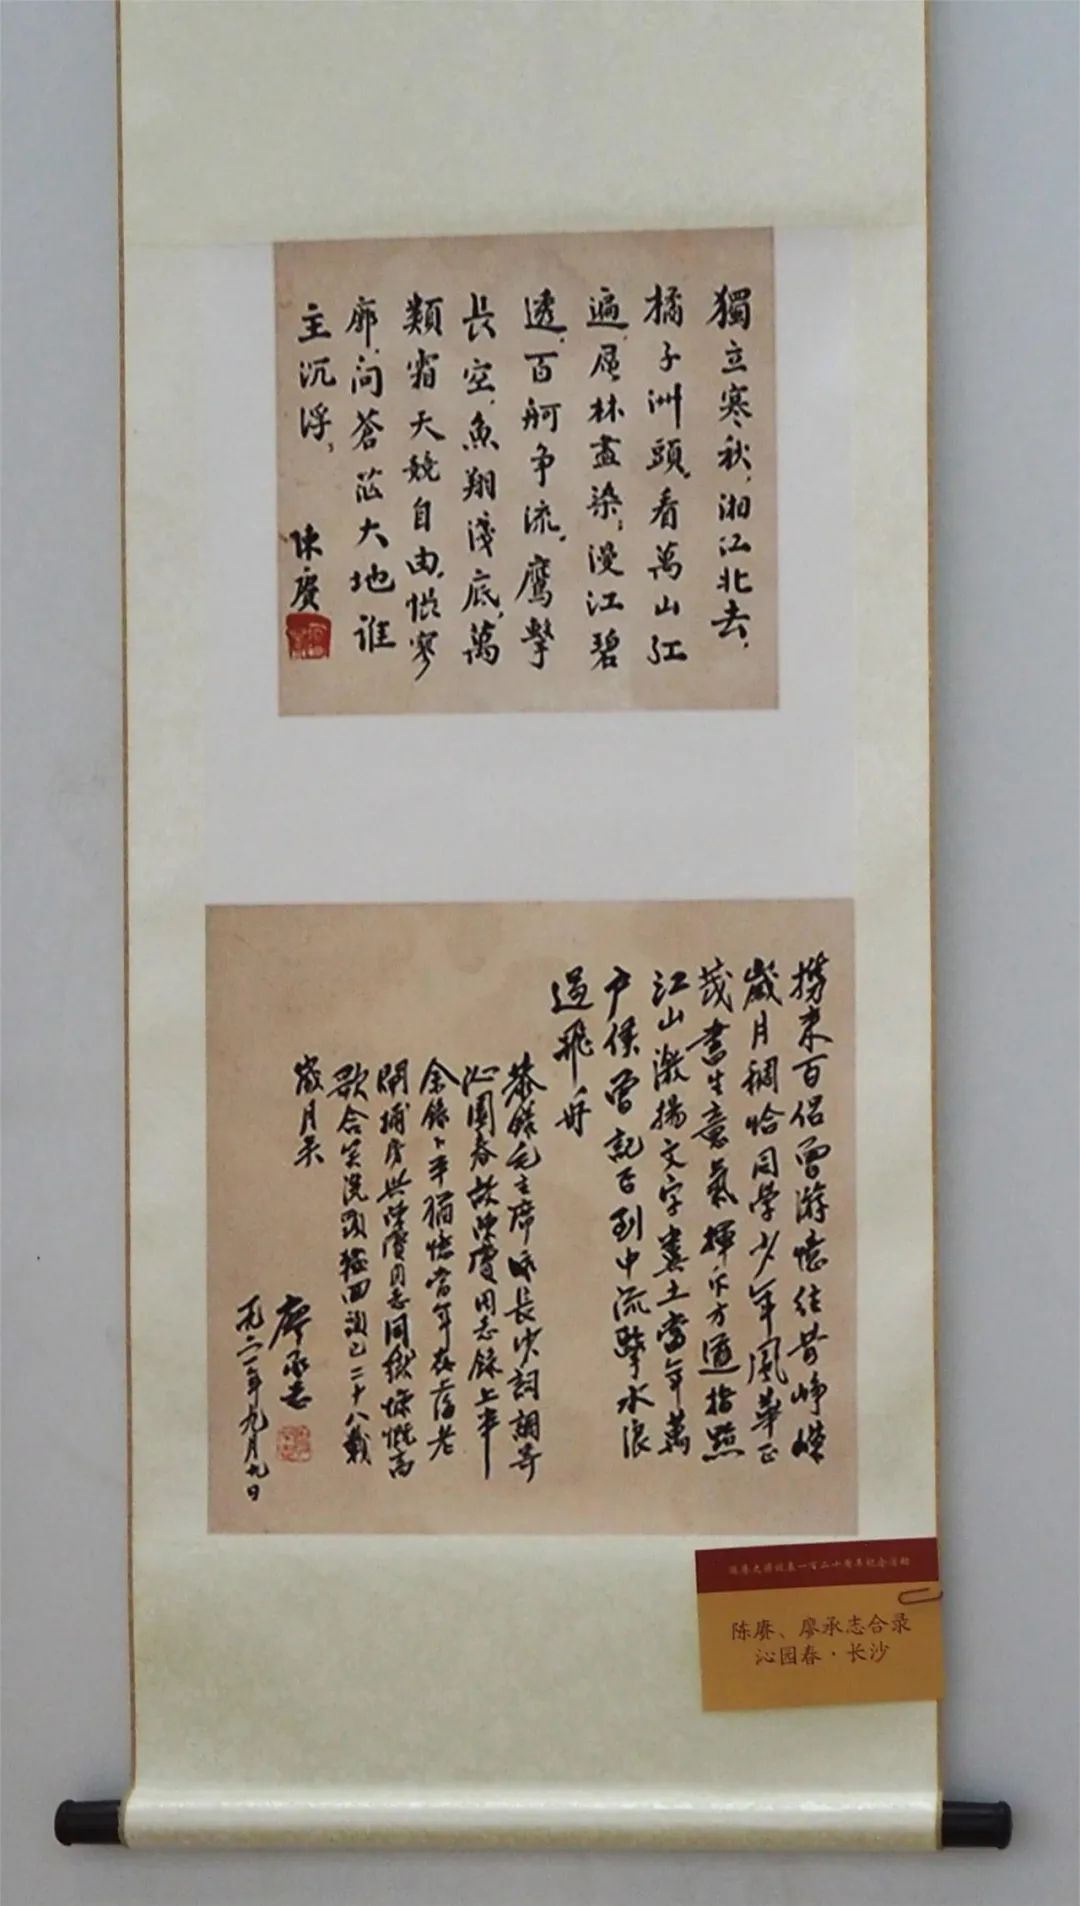 獨立寒秋,湘江北去,
橘子洲頭,看萬山红
遍,层林盡染;漫江碧
透,百舸争流,鷹擊
長空,魚翔淺底,萬
類霜天競自由,悵寥
廓,问蒼茫大地谁
主沉浮,
陳賡
携来百侣曾游憶往昔峥嵘
歲月稠恰同學少年風華正
茂書生意氣揮斥方遒指點
江山激揚文字糞土當年萬
户侯曾記否到中流擊水浪
遏飛舟
恭錄毛主席咏長沙詞調寄
沁園春故陳賡同志錄上半
余錄下半猶憶當年在滬老
閘捕房與陳賡同志同獄慷慨高
歌含笑 回 已二十八載
歲月矣
廖承志
一九六一年九月九日
陈赓大将诞辰一百二十周年纪念活动
陈赓、廖承志合录
沁园春·长沙